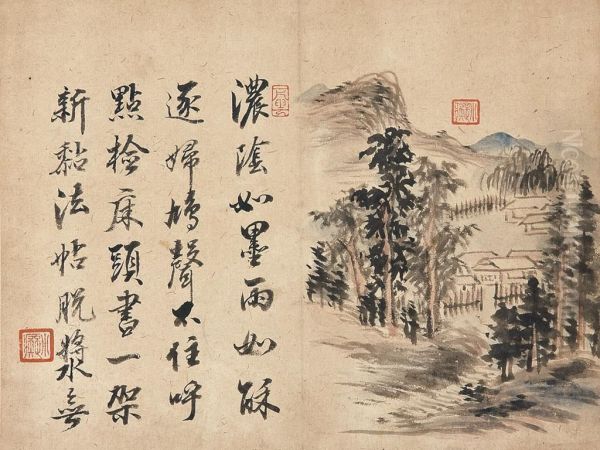 濃陰如墨雨如酥
逐婦鳩聲不住呼
點檢床頭書一架
新黏法帖脱漿無